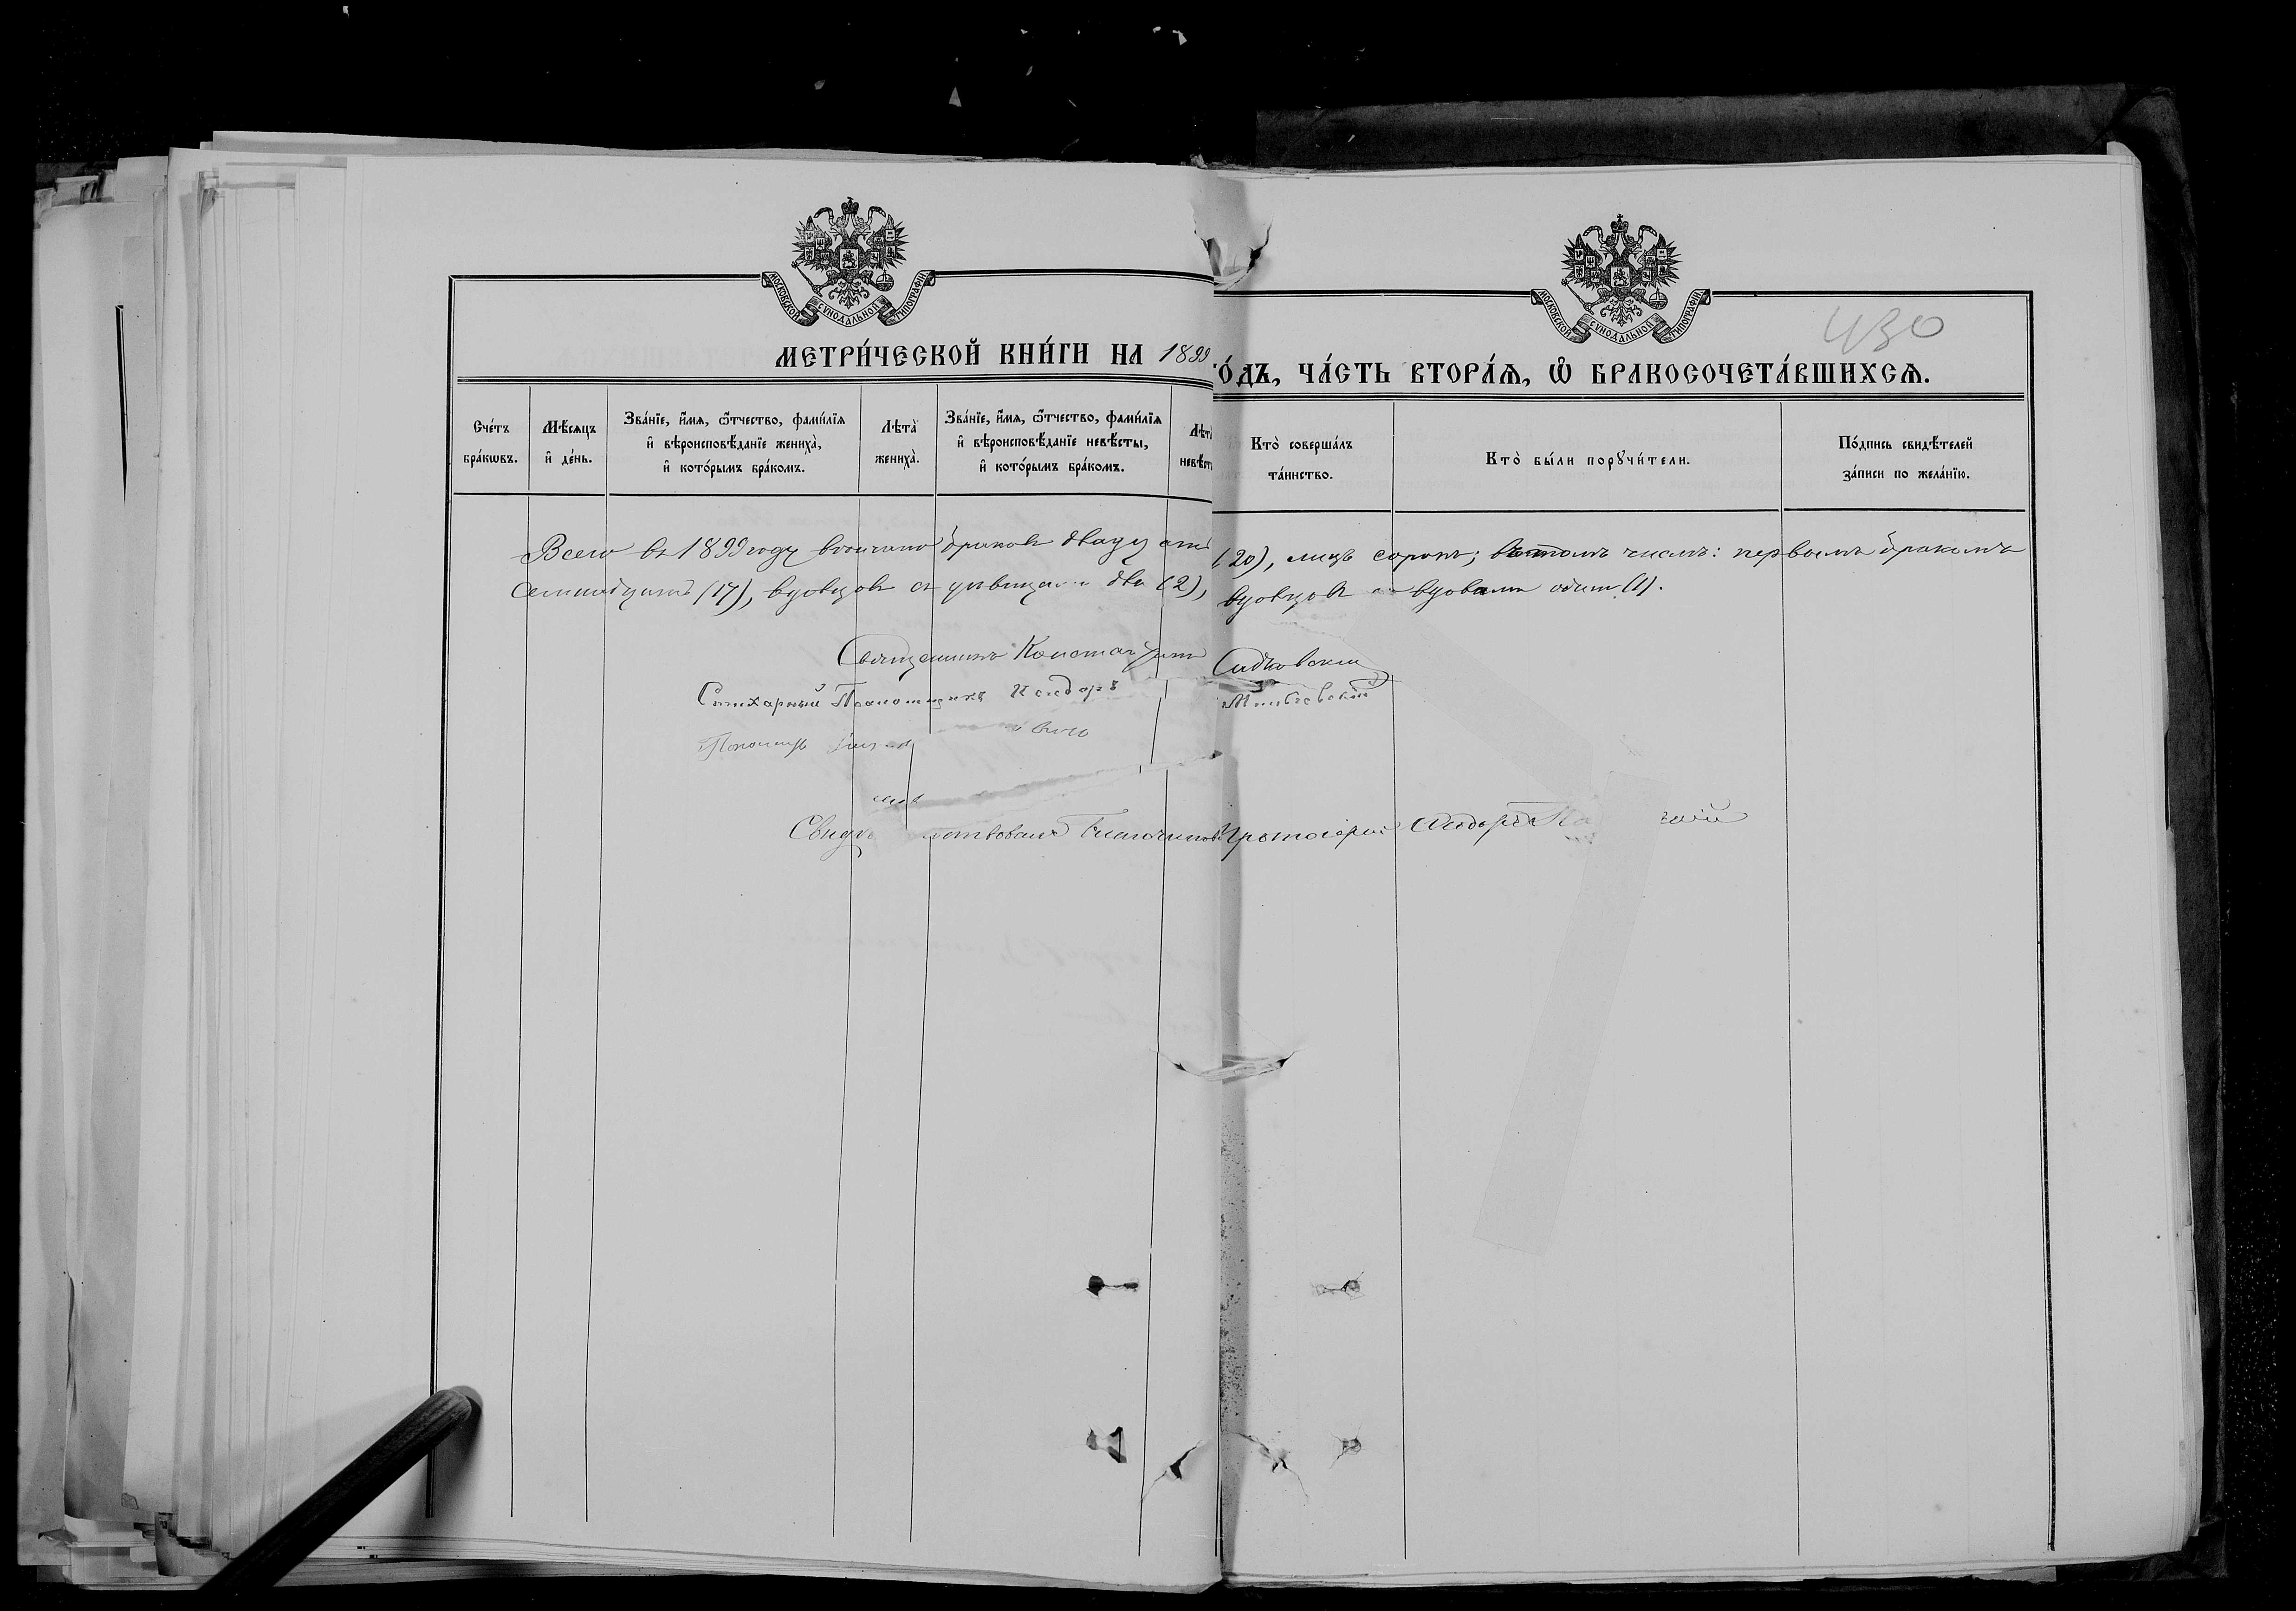 МОСКОВСКОЙ СѴНОДАЛЬНОЙ ТИПОГРАФІИ.
МОСКОВСКОЙ СѴНОДАЛЬНОЙ ТИПОГРАФІИ.
430
МЕТРИ́ЧЕСКОЙ КНИ́ГИ НА 1899 ГО́ДЪ, ЧА́СТЬ ВТОРА́Ѧ, Ѡ҆ БРАКОСОЧЕТА́ВШИХСѦ.
Сче́тъ бра́кѡвъ.
Мѣ́сѧцъ и҆ де́нь.
Зва́нїе, и҆́мѧ, ѻ҆́тчество, фами́лїѧ и҆ вѣроисповѣ́данїе жениха̀, и҆ кото́рымъ бра́комъ.
Лѣта̀ жениха̀.
Зва́нїе, и҆́мѧ, ѻ҆́тчество, фами́лїѧ и҆ вѣроисповѣ́данїе невѣ́сты, и҆ кото́рымъ бра́комъ.
Лѣта̀ невѣ́ст
Кто̀ соверша́лъ та́инство.
Кто̀ бы́ли порꙋчи́тели.
По́дпись свидѣ́телей за́писи по жела́нїю.
Всего въ 1899 году браковъ двадцать (20), лицъ сорокъ; въ томъ числѣ: первымъ бракомъ
семнадцать (17), вдовцовъ съ дѣвицами два (2), вдовцовъ съ вдовами одинъ (1).
Священникъ Константинъ
Стихарный Псаломщикъ Исидоръ
Свидѣ тельствовалъ Благочинный Протоіерей Ѳеодоръ